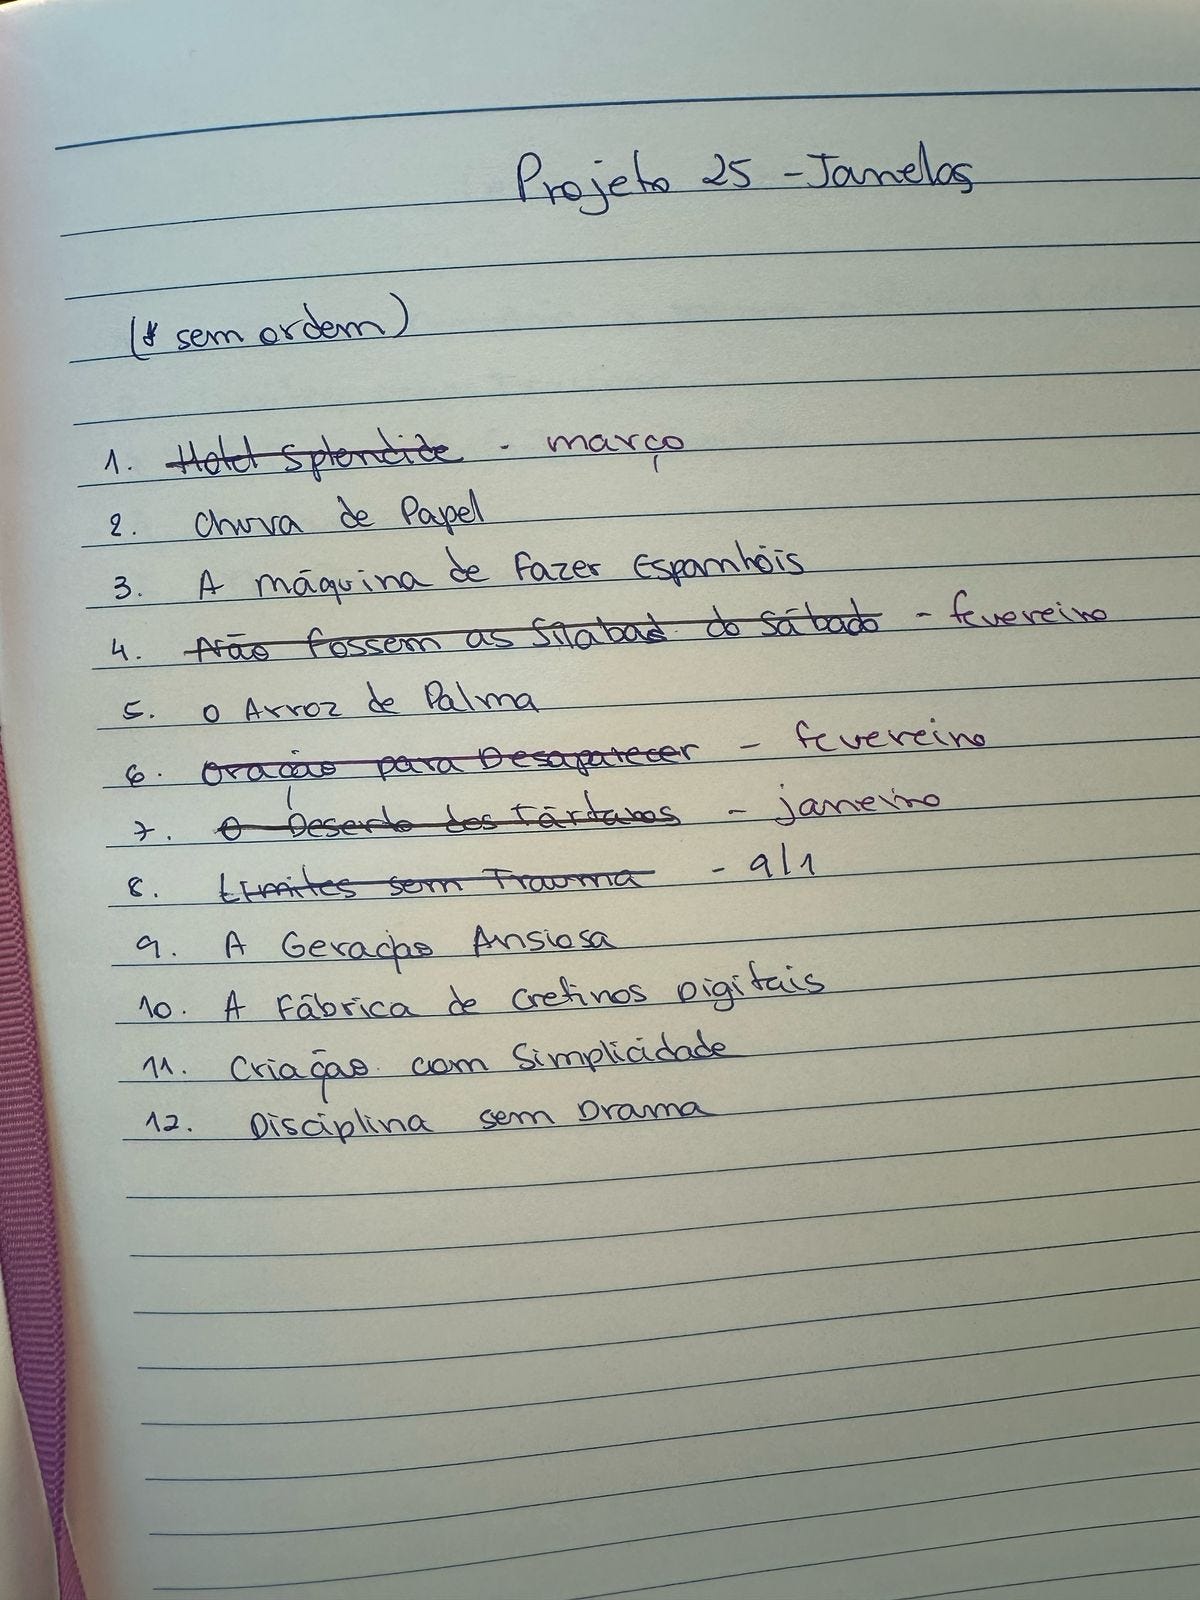 Projeto 25 - Janelas
(* sem ordem)
1. Hotel Splendide - março
2. Chuva de Papel
3. A máquina de Fazer Espanhóis
4. Não fossem as Sílabas do Sábado - fevereiro
5. O Arroz de Palma
6. Oração para Desaparecer - fevereiro
7. O Deserto dos Tártaros - janeiro
8. Limites sem Trauma - 9/1
9. A Geração Ansiosa
10. A Fábrica de Cretinos Digitais
11. Criação com Simplicidade
12. Disciplina sem Drama